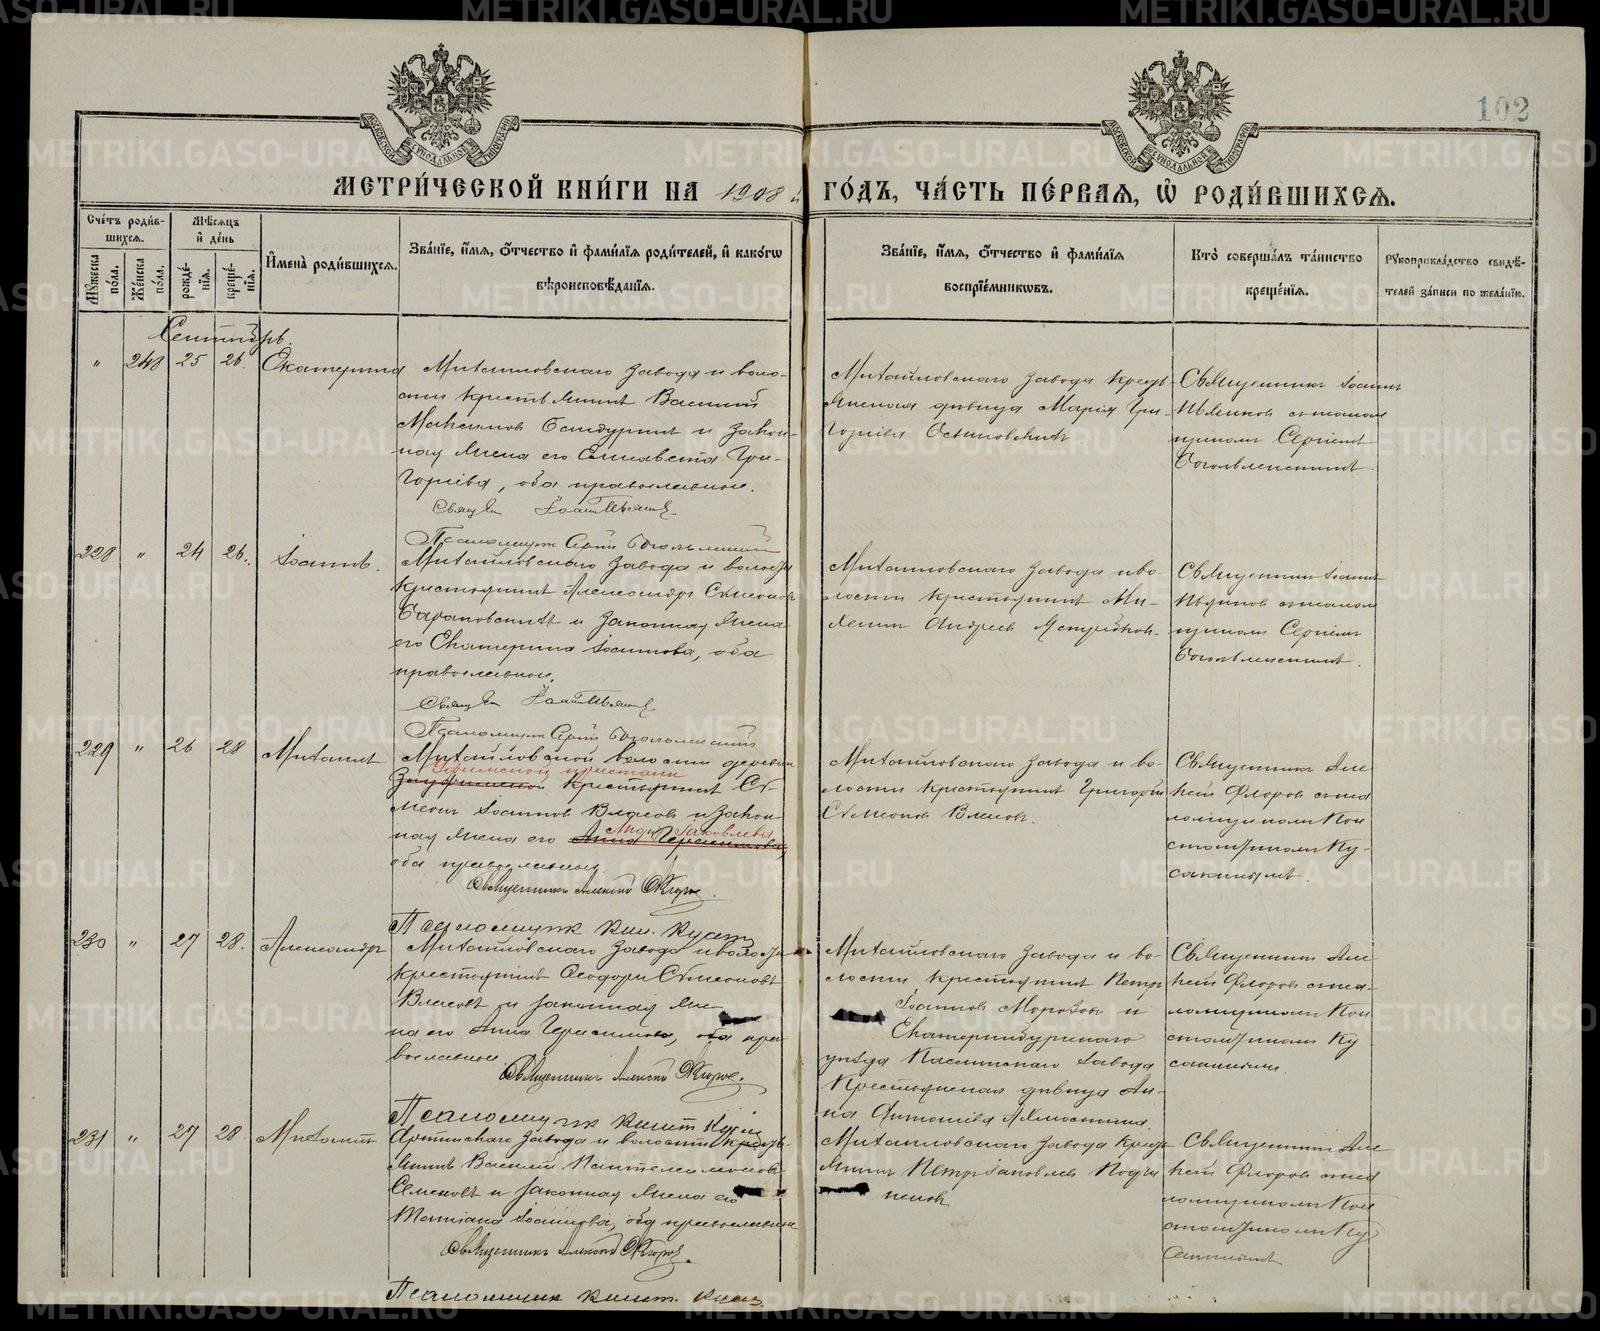 METRIKI.GASO-URAL.RU
102
МОСКОВСКОЙ СѴНОДАЛЬНОЙ ТИПОГРАФІИ
МЕТРИ́ЧЕСКОЙ КНИ́ГИ НА 1908 ГО́ДЪ, ЧА́СТЬ ПЕ́РВАЯ, Ѡ҆ РОДИ́ВШИХСЯ.
Сче́тъ роди́вшихся.
Му́жеска по́ла.
Же́нска по́ла.
Мѣ́сяцъ и҆ де́нь
рожде́нїя.
креще́нїя.
И҆мена̀ роди́вшихся.
Зва́нїе, и҆́мя, ѻ҆́тчество и҆ фами́лїя роди́телей, и҆ како́гѡ вѣроисповѣ́данїя.
Зва́нїе, и҆́мя, ѻ҆́тчество и҆ фами́лїя воспрїе́мникѡвъ.
Кто̀ соверша́лъ та́инство креще́нїя.
Рꙋкоприкла́дство свидѣ́телей за́писи по жела́нїю.
Сентябрь.
" 248 25 26. Екатерина
Михайловскаго завода и воло-
сти крестьянинъ Василий
Максимов и закон-
ная жена его Елисавета Гри-
горьева, оба православные.
Михайловскаго завода кресть-
янская девица Мария Гри-
горьева
Священникъ Іоаннъ
съ псалом
щикомъ Сергиемъ
Богоявленскимъ
228 " 24 26. Іоаннъ.
Михайловскаго завода и волости
крестьянинъ Александръ Симеонов
Барановскихъ и законная жена
его Екатерина Іоаннова, оба
православные.
Михайловскаго завода и во-
лости крестьянинъ Ми-
Андреев
Священникъ Іоаннъ
съ псалом
щикомъ Сергиемъ
Богоявленскимъ.
229 " 26 28 Михаилъ
Михайловской волости деревни
Уфимской пристани
крестьянинъ Си-
меонъ Іоаннов Власов и закон-
ная жена его Анна Герасимова, Іаковлева
оба православные
Священникъ Алексей Флоров.
Михайловскаго завода и во-
лости крестьянинъ Григорий
Симеонов Власов.
Священникъ Але-
ксей Флоров с пса
ломщикомъ Кон
стантиномъ Ку-
сакинымъ.
230 " 27 28. Александръ
Михайловскаго завода и волости
крестьянинъ Феодоръ Симеоновъ
Власовъ и законная же-
на его Анна Герасимова, оба пра-
вославные.
Священникъ Алексей Флоров.
Михайловскаго завода и во-
лости крестьянинъ Петр
Іоаннов Морозов и
Екатеринбургскаго
уезда Каслинскаго завода
крестьянская девица Ан-
на Антониева
Священникъ Але-
ксей Флоров с пса-
ломщикомъ Кон
стантиномъ Ку
сакинымъ.
231 " 27 28. Михаилъ
Артинскаго завода и волости кресть-
янинъ Василий Пантелеимонов
Семеновъ и законная жена его
Татиана Іоаннова, оба православные
Священникъ Алексей Флоров.
Михайловскаго завода кресть-
янинъ Петр Іаковлев
Священникъ Але-
ксей Флоров с пса
ломщикомъ Кон
стантиномъ Ку
сакинымъ